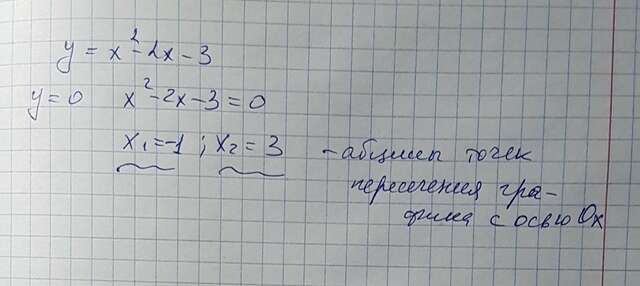 y = x² - 2x - 3
y = 0 x² - 2x - 3 = 0
x₁ = -1 ; x₂ = 3 - абциссы точек
пересечения гра-
фика с осью Ox